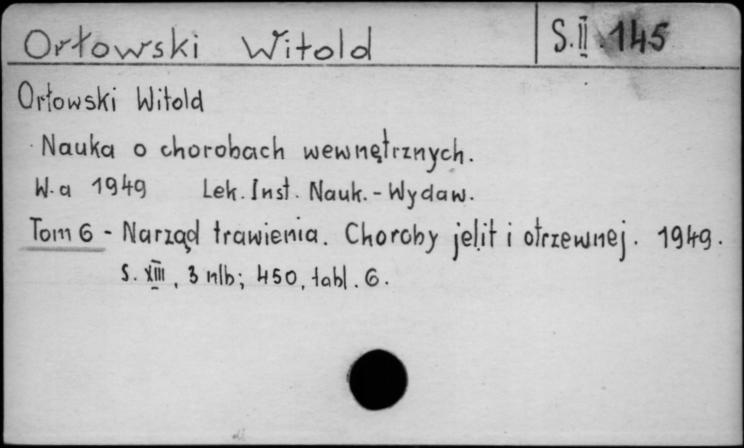 Orłowski Witold S.II.145
Orłowski Witold
Nauka o chorobach wewnętrznych.
W-a 1949 Lek. Inst. Nauk. - Wydaw.
Tom 6 - Narząd trawienia. Choroby jelit i otrzewnej. 1949.
S. XIII, 3 nlb; 450, tabl. 6.